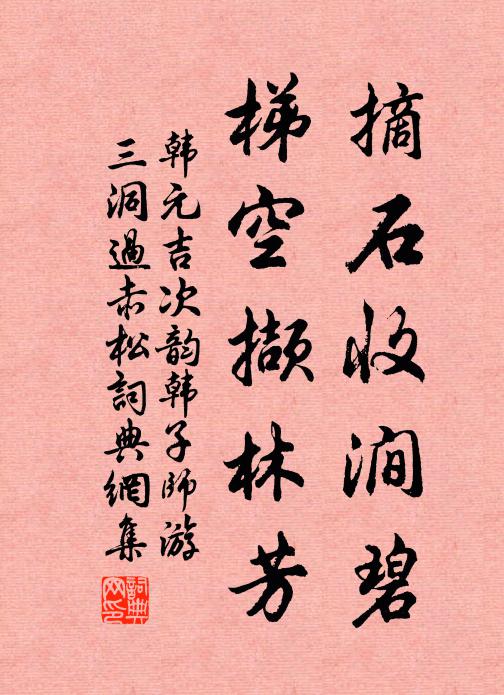 摘石收涧碧
梯空撷林芳
韩元吉次韵韩子师游
三洞過赤松詞典網集
詞典网印